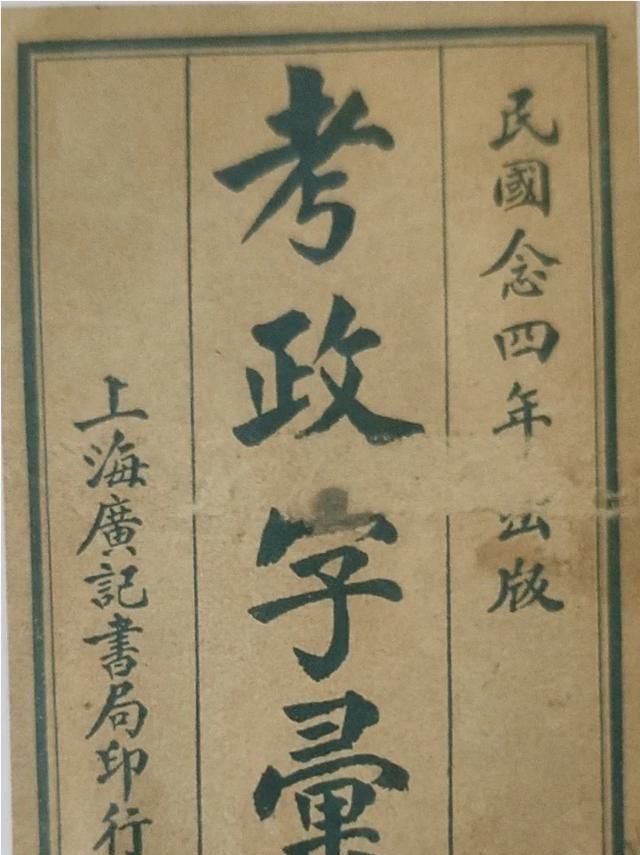 民國念四年出版
考政字彙
上海廣記書局印行